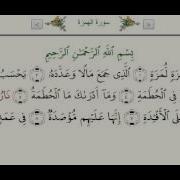 سورة الهمزة
بِسْمِ اللَّهِ الرَّحْمَٰنِ الرَّحِيمِ
لُّمَزَةٍ ۝١ الَّذِي جَمَعَ مَالًا وَعَدَّدَهُ ۝٢ يَحْسَبُ
فِي الْحُطَمَةِ ۝٤ وَمَا أَدْرَاكَ مَا الْحُطَمَةُ ۝٥ نَارُ
الْأَفْئِدَةِ ۝٧ إِنَّهَا عَلَيْهِم مُّؤْصَدَةٌ ۝٨ فِي عَمَدٍ